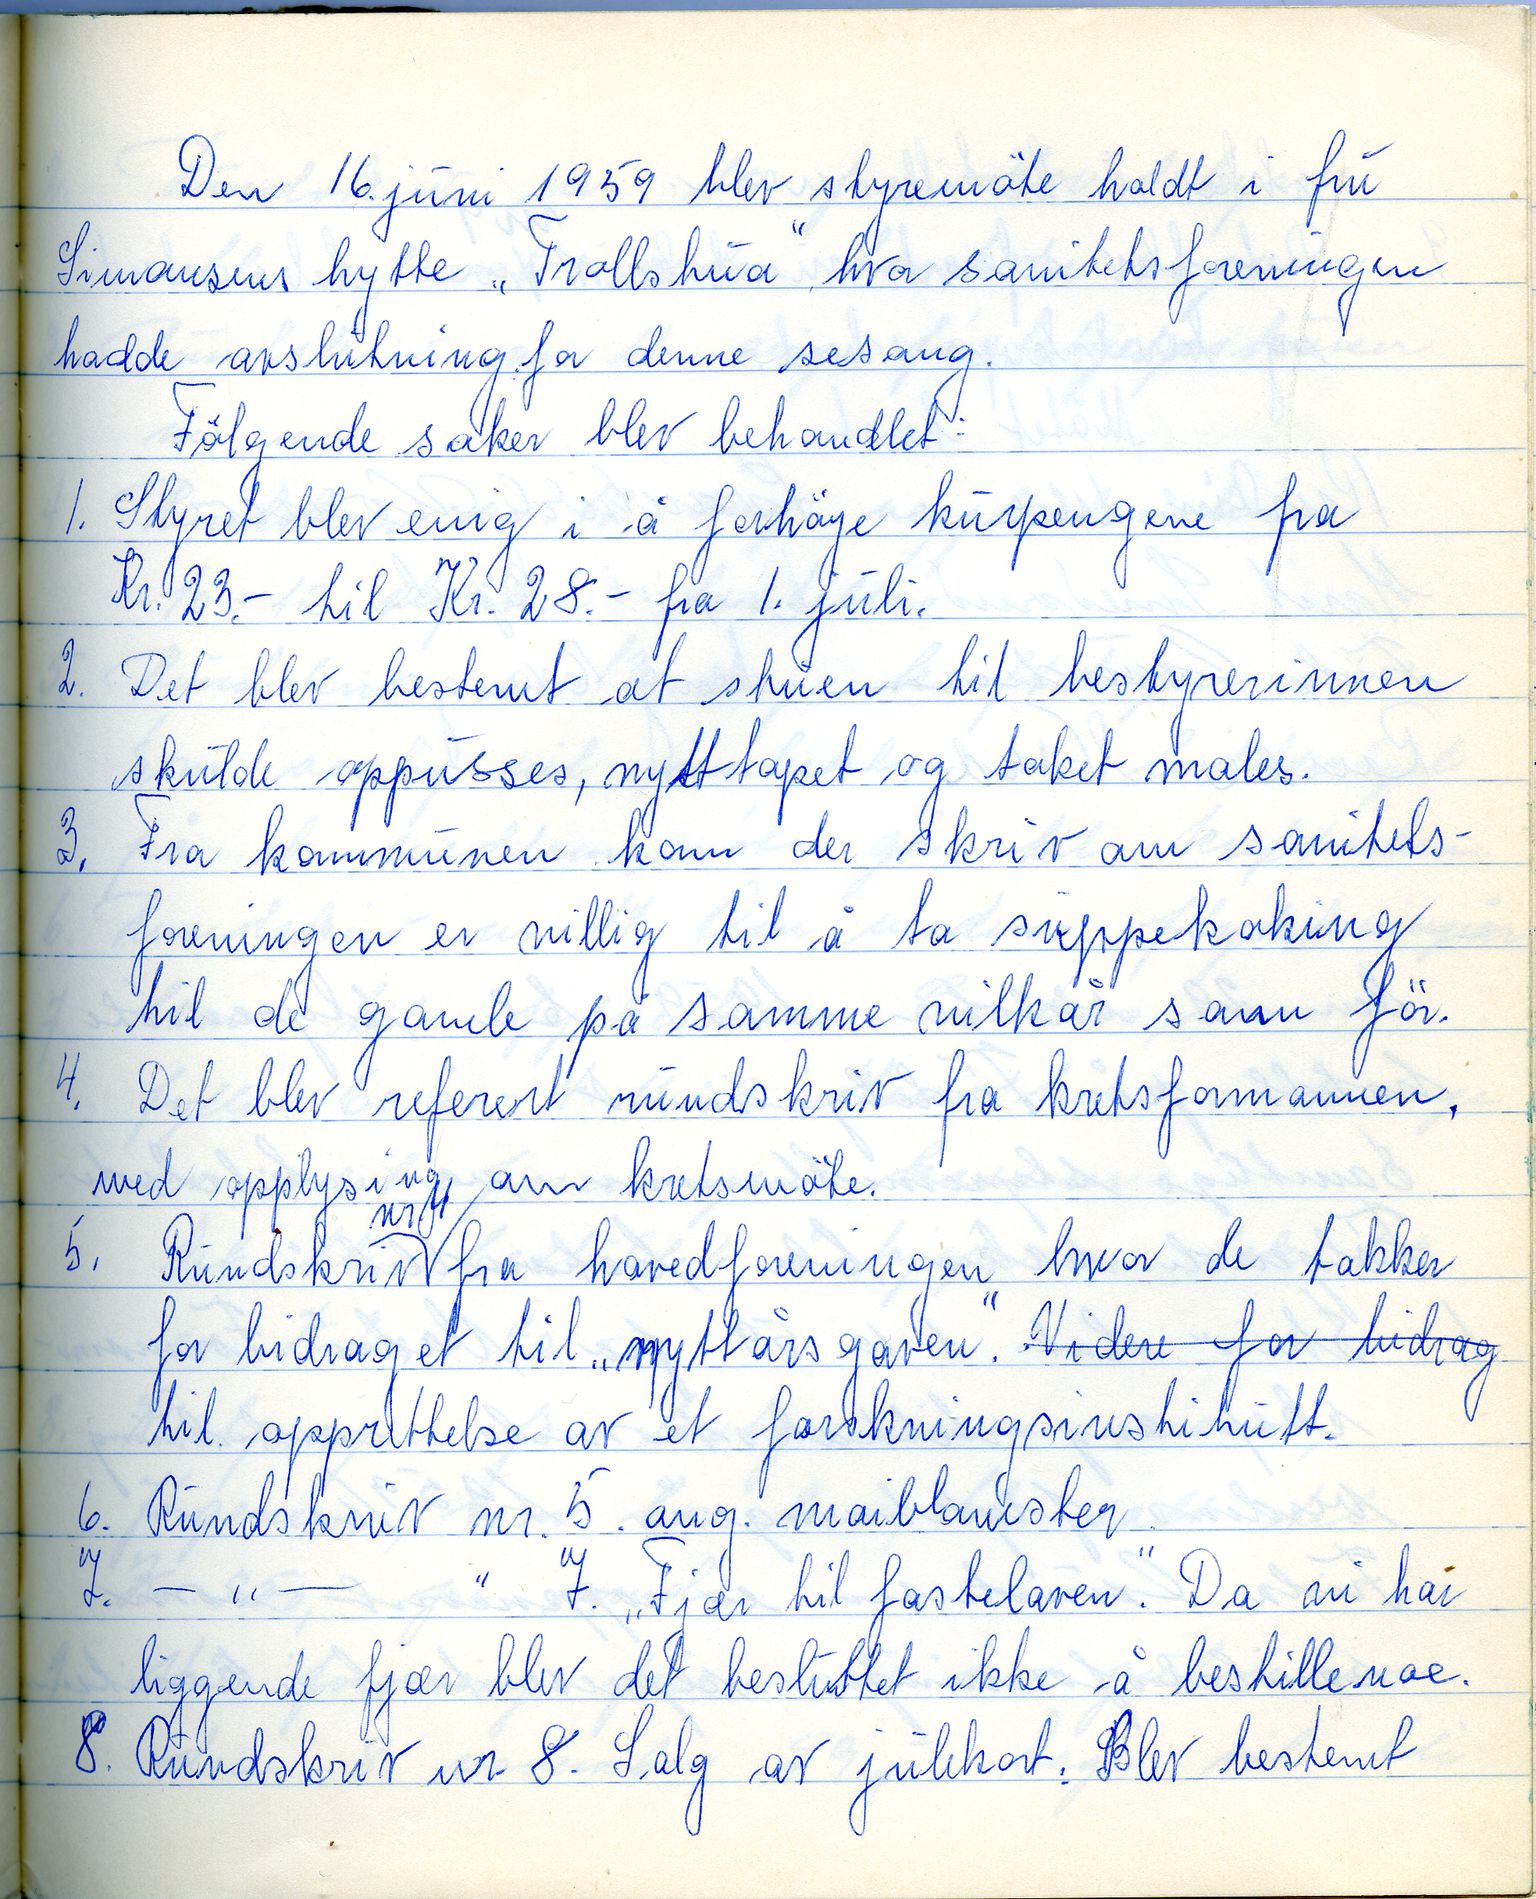 Den 16. juni 1959 blev styremöte holdt i fru
Simonsens hytte „Trollshua“, hvor sanitetsforeningen
hadde avslutning for denne sesong.
Fölgende saker blev behandlet:
1. Styret blev enig i å forhöye kurpengene fra
Kr. 23.- til Kr. 28.- fra 1. juli.
2. Det blev bestemt at stuen til bestyrerinnen
skulde oppusses, nytt tapet og taket males.
3. Fra kommunen kom der skriv om sanitets-
foreningen er villig til å ta suppekoking
til de gamle på samme vilkår som för.
4. Det blev referert rundskriv fra kretsformannen,
med opplysing om kretsmöte.
5. Rundskriv nr 4 fra hovedforeningen hvor de takker
for bidraget til „nyttårsgaven“. Videre for bidrag
til opprettelse av et forskningsinstitutt.
6. Rundskriv nr. 5. ang. maiblomster.
7. — „ — " 7. „Fjær til fastelaven“. Da vi har
liggende fjær blev det besluttet ikke å bestille noe.
8. Rundskriv nr 8. Salg av julekort. Blev bestemt